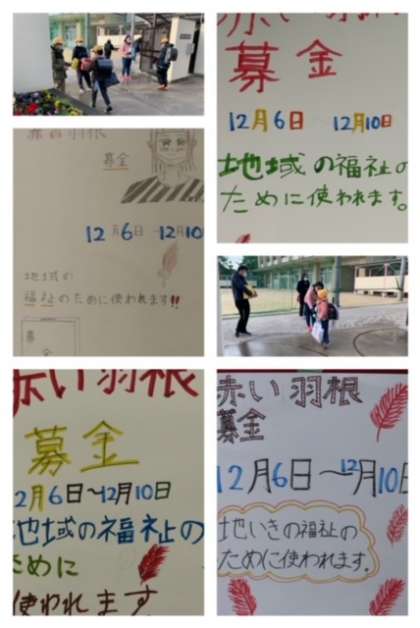 赤い羽根
募金
12月6日 12月10日
地域の福祉の
ために使われます。
赤い羽根
募金
12月6日~12月10
地域の
福祉のために使われます!!
募
金
赤い羽根
募金
12月6日~12月10日
地域の福祉の
ために
使われます
赤い羽根
募金
12月6日~12月10日
地いきの福祉の
ために使われます。